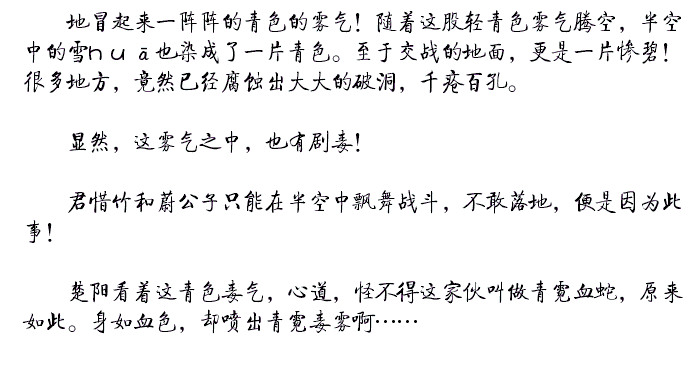 地冒起来一阵阵的青色的雾气！随着这股轻青色雾气腾空，半空
中的雪huā也染成了一片青色。至于交战的地面，更是一片惨碧！
很多地方，竟然已经腐蚀出大大的破洞，千疮百孔。
显然，这雾气之中，也有剧毒！
君惜竹和蔚公子只能在半空中飘舞战斗，不敢落地，便是因为此
事！
楚阳看着这青色毒气，心道，怪不得这家伙叫做青霓血蛇，原来
如此。身如血色，却喷出青霓毒雾啊……